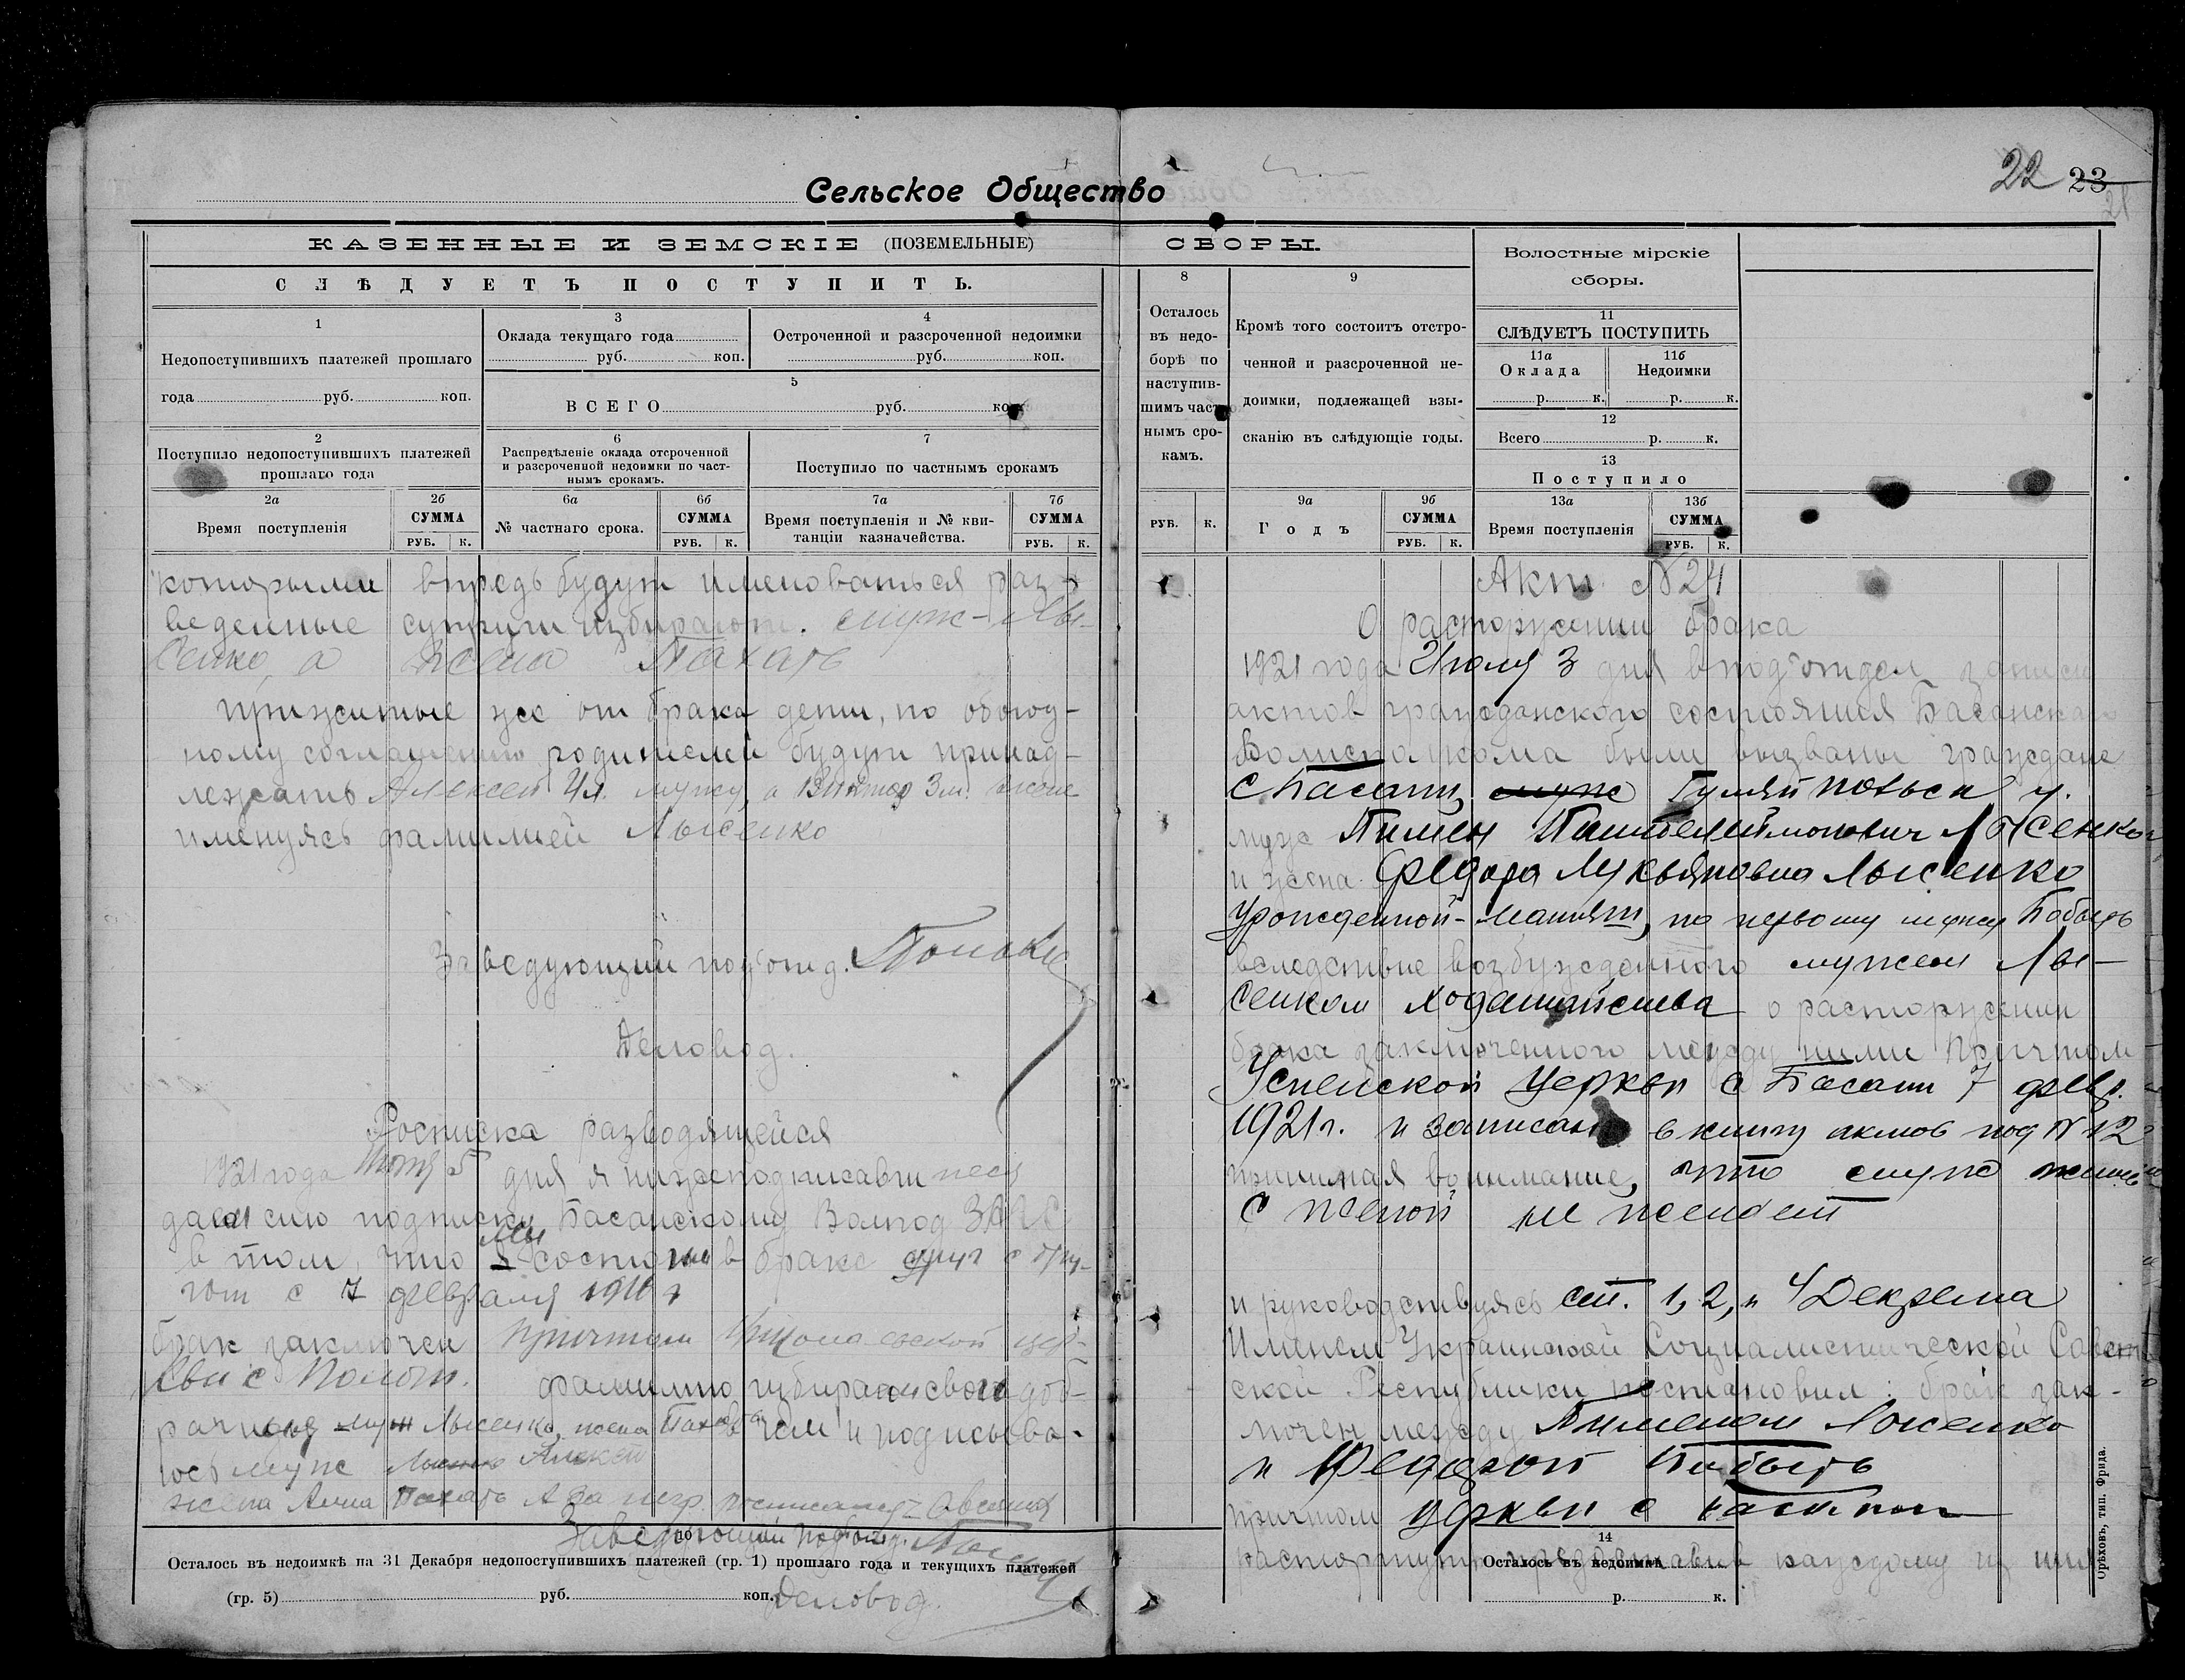 22 23
21
Сельское Общество
КАЗЕННЫЕ И ЗЕМСКІЕ (ПОЗЕМЕЛЬНЫЕ) СБОРЫ.
СЛѢДУЕТЪ ПОСТУПИТЬ.
1
Недопоступившихъ платежей прошлаго
года руб. коп.
2
Поступило недопоступившихъ платежей
прошлаго года
2а
Время поступленія
2б
СУММА
РУБ. К.
3
Оклада текущаго года
руб. коп.
4
Остроченной и разсроченной недоимки
руб. коп.
5
ВСЕГО руб. коп.
6
Распредѣленіе оклада отсроченной
и разсроченной недоимки по част-
нымъ срокамъ.
6а
№ частнаго срока.
6б
СУММА
РУБ. К.
7
Поступило по частнымъ срокамъ
7а
Время поступленія и № кви-
танціи казначейства.
7б
СУММА
РУБ. К.
которыми впредь будут именоваться раз-
веденные супруги избирают. муж-Лы-
сенко, а жена Пахать
прижитые же от брака дети, по обоюд-
ному соглашению родителей будут принад-
лежать Алексей 4л. мужу, а Виктор 3м. жене
именуясь фамилией Лысенко
Заведующий под'отд.
Деловод.
Росписка разводящейся
1921 года 5 дня я нижеподписавшиеся
даем сию подписку Басанскому Волпод ЗАГС
в том, что мы состоим в браке друг с дру-
гом с 7 февраля
брак заключен причтом цер-
кви с Полог. фамилию избираем свою доб-
рачную муж Лысенко, жена чем и подписыва-
юсь муж Алексей
жена Анна Пахать А за негр.
Заведующий подотд.
10
Осталось въ недоимкѣ на 31 Декабря недопоступившихъ платежей (гр. 1) прошлаго года и текущихъ платежей
(гр. 5) руб. коп.
Деловод.
8
Осталось
въ недо-
борѣ по
наступив-
шимъ част-
нымъ сро-
камъ.
РУБ. К.
9
Кромѣ того состоитъ отстро-
ченной и разсроченной не-
доимки, подлежащей взы-
сканію въ слѣдующіе годы.
9а
Годъ
9б
СУММА
РУБ. К.
Волостные мірскіе
сборы.
11
СЛѢДУЕТЪ ПОСТУПИТЬ
11а
Оклада
р. к.
11б
Недоимки
р. к.
12
Всего р. к.
13
Поступило
13а
Время поступленія
13б
СУММА
РУБ. К.
Акт N 21
О расторжении брака
1921 года Июля 3 дня в под'отдел записи
актов гражданского состояния Басанского
Волисполкома были вызваны граждане
с Басани, муж Гуляйпольск у.
муж Пимен Пантелеймонович Лысенко
и жена Федора Лукьяновна Лысенко
урожденной- по первому мужу Бабырь
вследствие возбужденного мужем Лы-
сенком ходатайства о расторжении
брака заключенного между ними причтом
Успенской церкви с Басани 7 февр.
1921 г. и записан в книгу актов под N 12
принимая во внимание, что муж
с женой не желает
и руководствуясь ст. 1, 2, и 4 Декрета
Именем Украинской Социалистической Совет-
ской Республики постановил: брак зак-
лючен между Пименом Лысенко
и Федорой Бабырь
причтом церкви с Басани
расторгнуть предоставив каждому из них
14
Осталось въ недоимкѣ
р. к.
Орѣховъ, тип. Фрида.